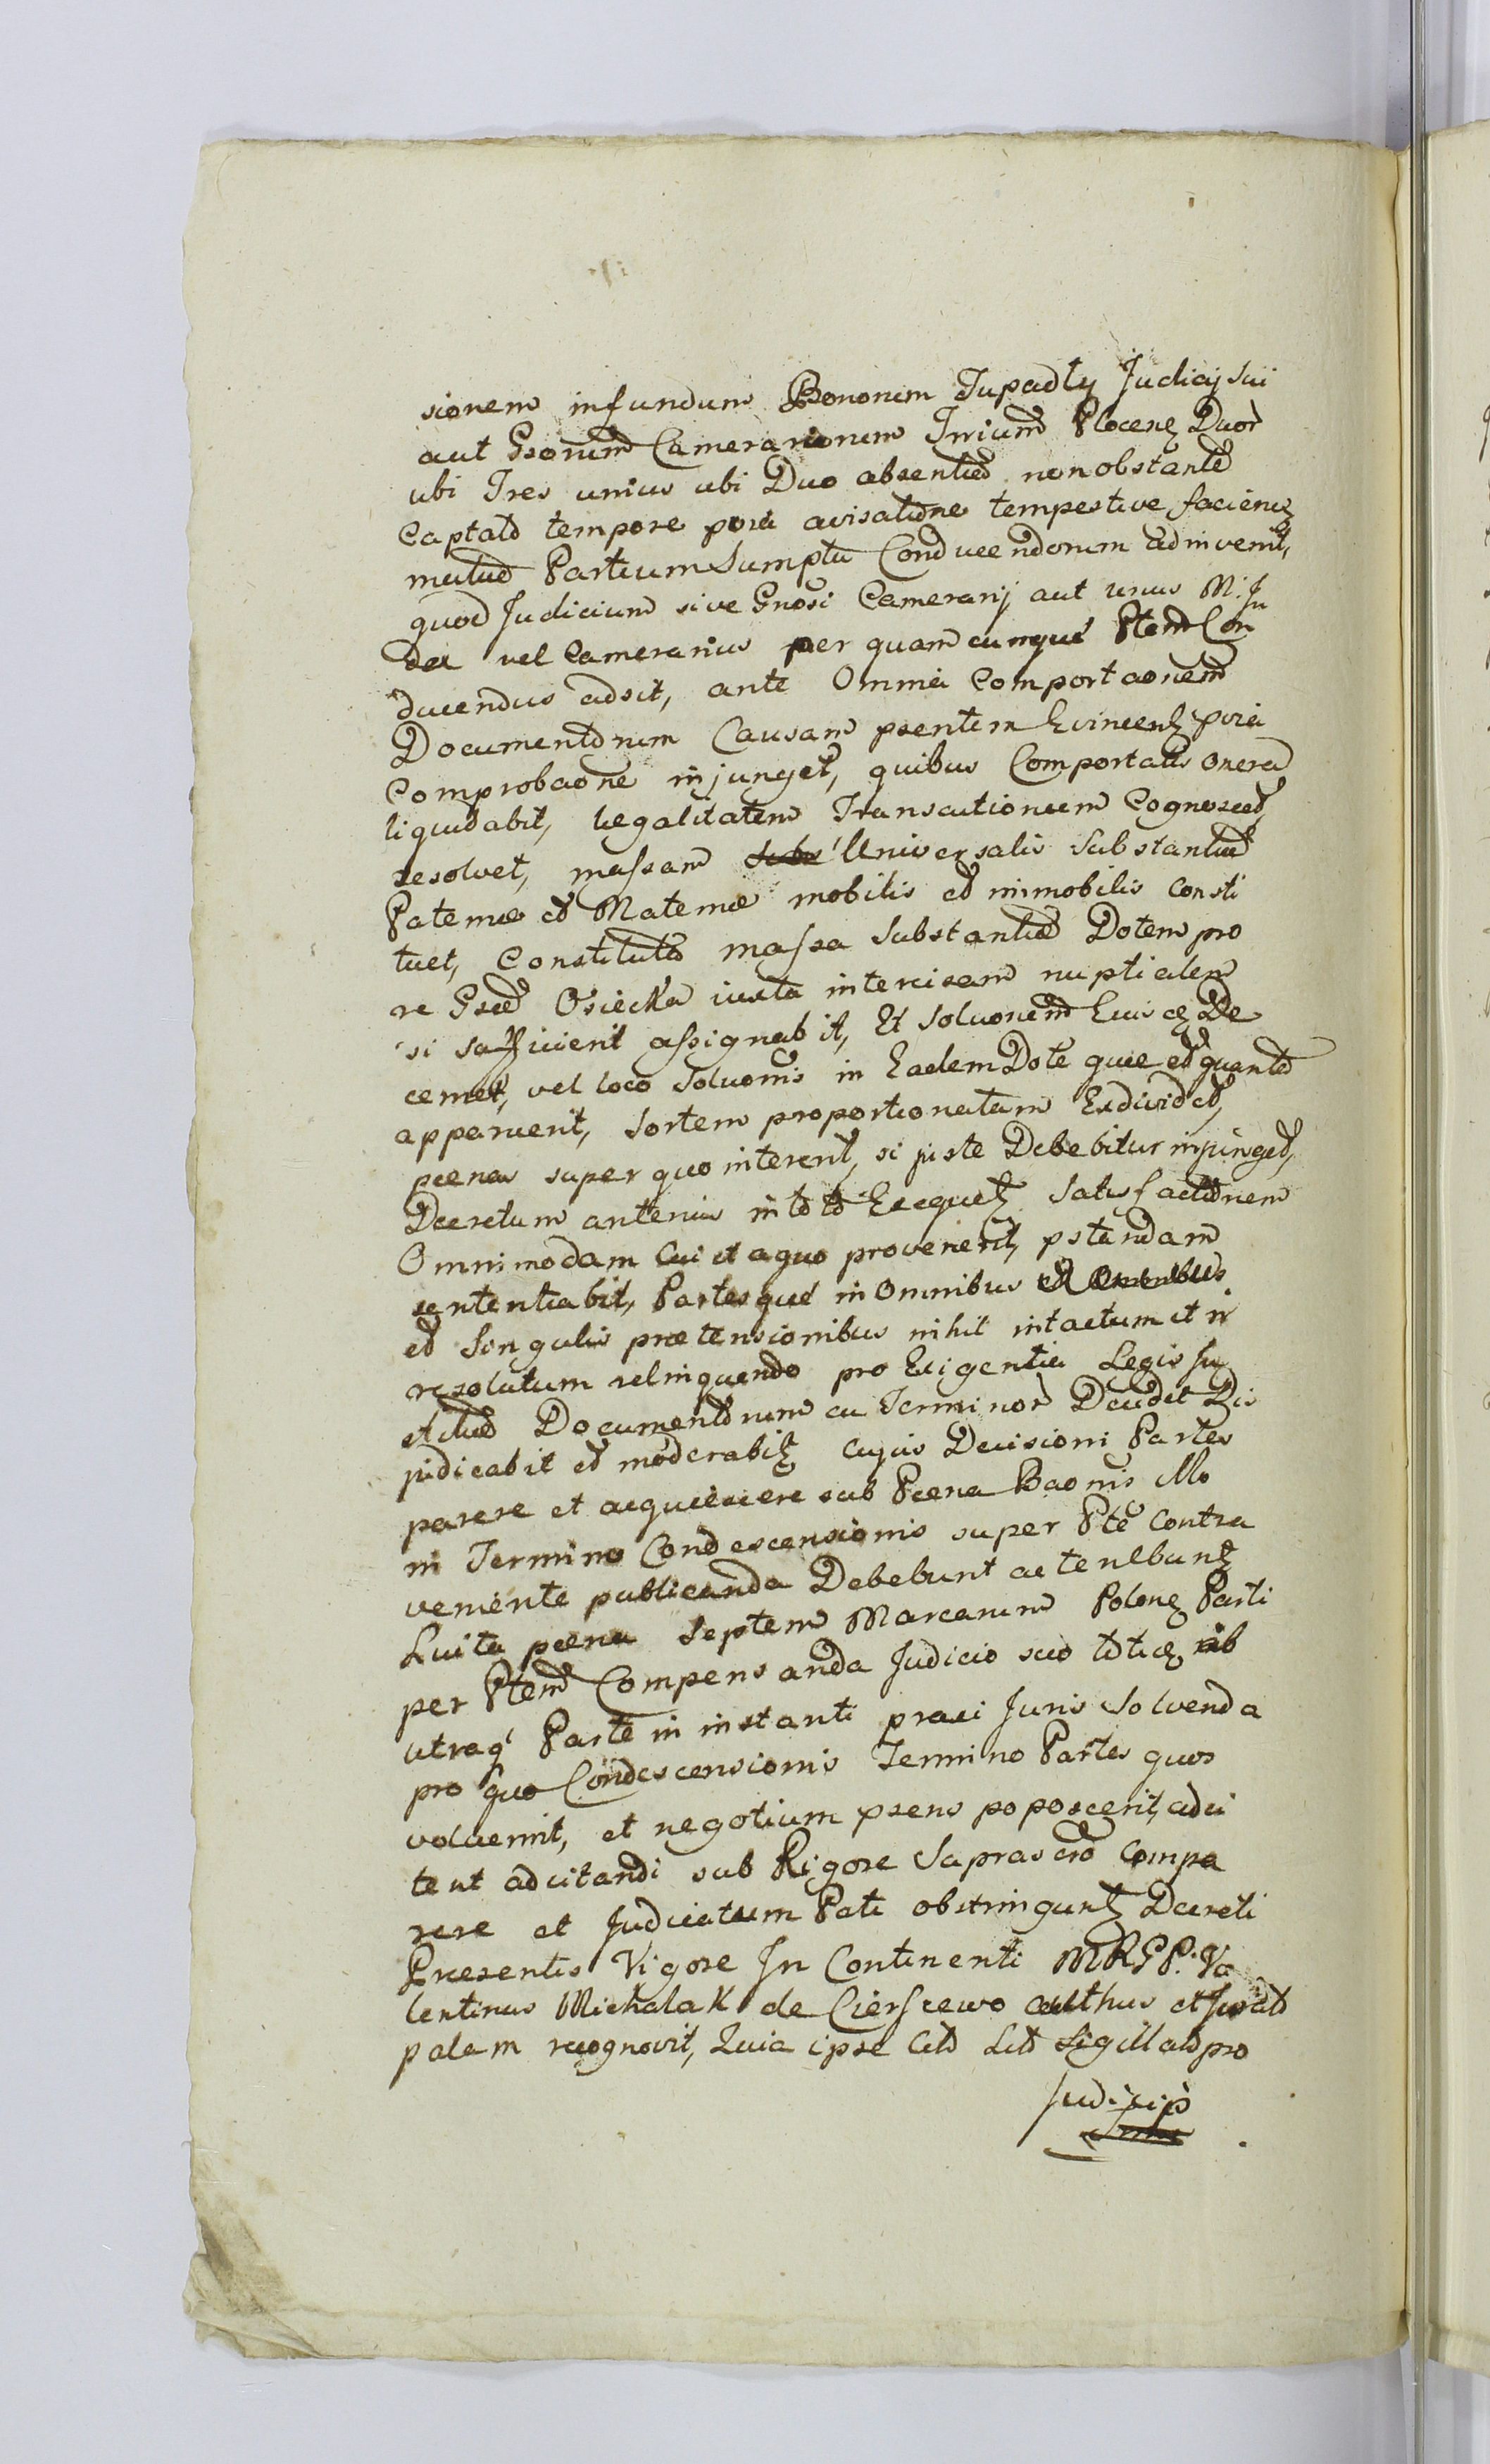 sionem in fundum Bonorum Tupadły Judicij sui
aut Gsorum Camerariorum Trium Plocens Duor
ubi Tres unius ubi Duo absentia non obstante
Captato tempore pvia avisatione tempestive faciens
mutuo Partium Sumptu Conducendorum adinvenit,
quod Judicium sive Gnosi Camerarij aut unus M. Ju
dex vel Camerarius per quamcunque Ptem Con
ducendus adsit, ante Omnia Comportaonem
Documentorum Causam psentem Evincent pvia
Comprobaone injunget, quibus Comportatis onera
liquidabit, legalitatem Transactionum Cognoscet,
resolvet, massam Universalis Substantiae
Paternae et Maternae mobilis et immobilis Consti
tuet, Constituta massa Substantiae Dotem pro
re Gsae Osiecka iuxta intercisam nuptialem
si suffecerit assignabit, Et Soluonem Eius De
cernet, vel loco Soluonis in Eadem Dote quae et quanta
apparuerit, Sortem proportionatam Exdividet,
paenas super quo intererit, si juste Debebitur injunget,
Decretum anterius in toto Exequet Satisfactionem
Omnimodam Cui et a quo provenerit, pstandam
sententiabit, Partesque in Omnibus
et Singulis praetensionibus nihil intactum et ir
resolutum relinquendo pro Exigentia Legis Ju
Documentorum cu Terminor Decidet Dis
judicabit et moderabit cujus Decisioni Partes
parere et acquiescere sub Poena Baonis Illo
in Termino Condescensionis super Pte Contra
veniente publicanda Debebunt ac tenebunt
Luita poena Septem Marcarum Polon Parti
per Ptem Compensanda Judicio suo ab
utraq Parte in instanti praevi Juris Solvenda
pro quo Condescensionis Termino Partes quos
voluerint, et negotium psens poposcerit, adci
tent adcitandi sub Rigore Suprascro Compa
rere et Judicatum Pati obstringunt Decreti
Praesentis Vigore In Continenti MRGP. Va
lentinus Michalak de Cierszewo et Jurato
palam recognovit, Quia ipse Sigillat pro
Judicio